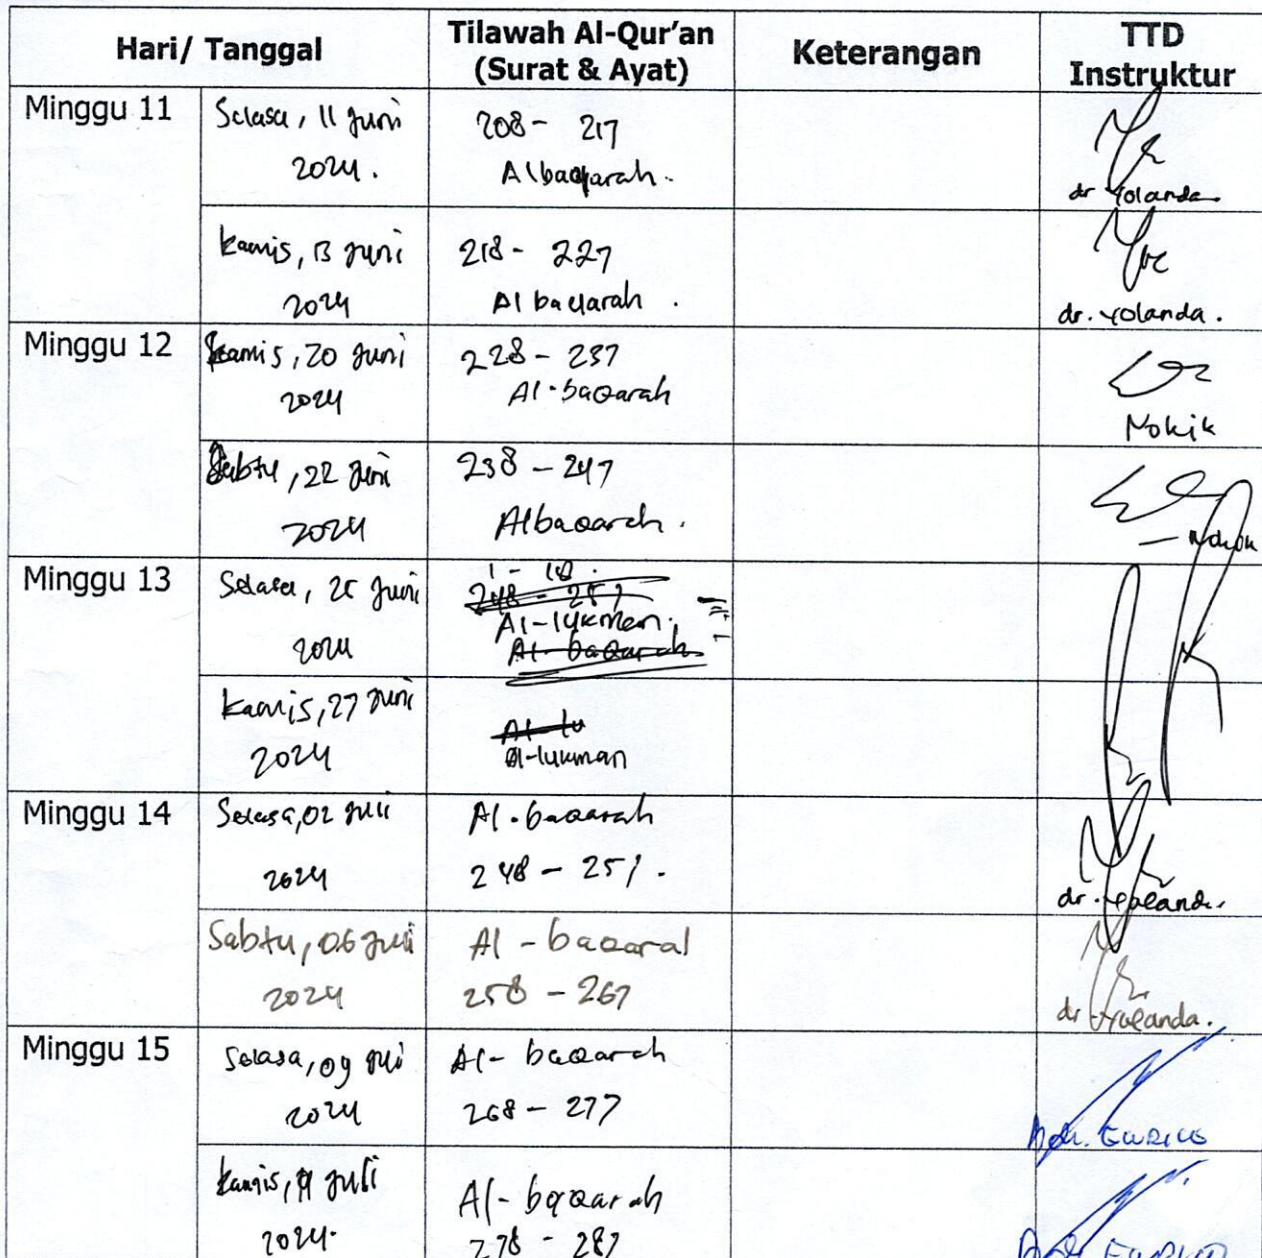 Hari/ Tanggal
Tilawah Al-Qur'an
(Surat & Ayat)
Keterangan
TTD
Instruktur
Minggu 11
Selasa, 11 Juni
2024.
208 - 217
Albaqarah.
dr Yolanda
Kamis, 13 Juni
2024
218 - 227
Albaqarah.
dr. Yolanda.
Minggu 12
Kamis, 20 Juni
2024
228 - 237
Al-baqarah
Nokik
Sabtu, 22 Juni
2024
238 - 247
Albaqarah.
Minggu 13
Selasa, 25 Juni
2024
1 - 10.
248 - 257
Al-lukman.
Al-baqarah
Kamis, 27 Juni
2024
Al-lu
Al-lukman
Minggu 14
Selasa, 02 Juli
2024
Al-baqarah
248 - 257.
dr. Yolanda.
Sabtu, 06 Juli
2024
Al-baqarah
258 - 267
dr Yolanda.
Minggu 15
Selasa, 09 Juli
2024
Al-baqarah
268 - 277
Kamis, 11 Juli
2024.
Al-baqarah
278 - 287